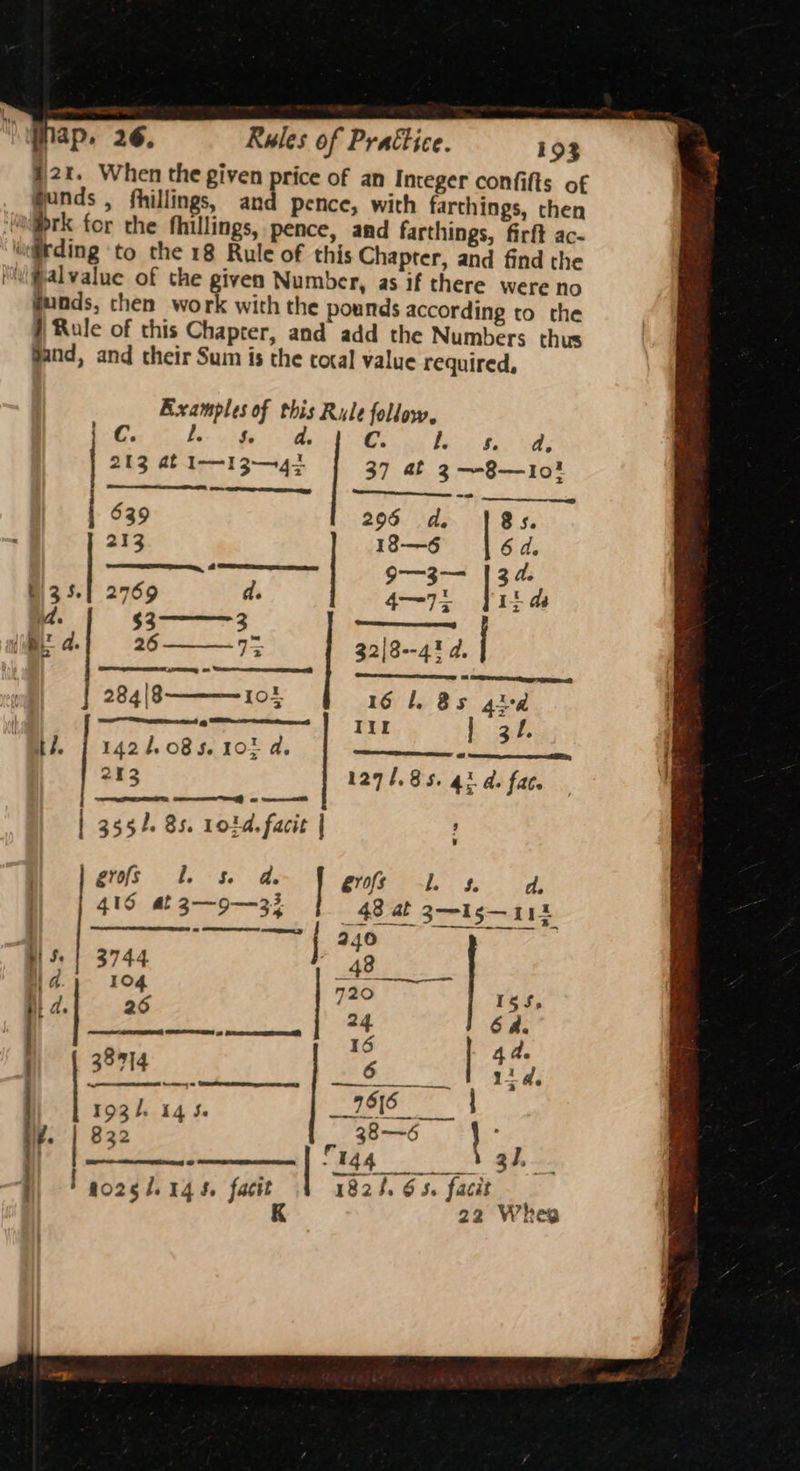 hap. 26. Rules of Practice. 193
21. When the given price of an Integer conſiſts of
unds, ſhillings, and pence, with farthings, then
ork for the ſhillings, pence, and farthings, firſt ac-
rding to the 18 Rule of this Chapter, and find the
al value of the given Number, as if there were no
unds, then work with the pounds according to the
Rule of this Chapter, and add the Numbers thus
and, and their Sum is the total value required.
Examples of this Rule follow.
C. l. s. d.
213 at 1—13—4½
639
213
3 s. 2769 d.
d. 53———3
d. 26———7½
284|8———10½
l. 142 l. 08 s. 10½ d.
213
355 l. 8s. 10½d. facit
C. l. s. d.
37 at 3—8—10½
296 d. 8 s.
18—6 6 d.
9—3— 3 d.
4—7½ 1½ d
32|8--4½ d.
16 l. 8s 4½d
111 3 l.
127 l. 8 s. 4½ d. fac.
groſs l. s. d.
416 at 3—9—3¾
s. 3744
d. 104
d. 26
387|4
193 l. 14 s.
832
1025 l. 14 s. facit
groſs l. s. d.
48 at 3—15—11½
240
48
720 15 s.
24 6 d.
16 4 d.
6 1½ d.
76|6
38—6
144 3 l.
182 l. 6 s. facit
K 22 When